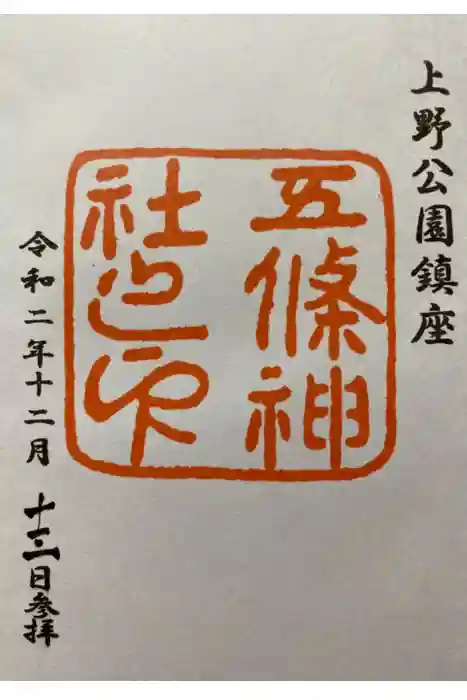 上野公園鎮座
五條神
社之印
令和二年十二月十三日参拝